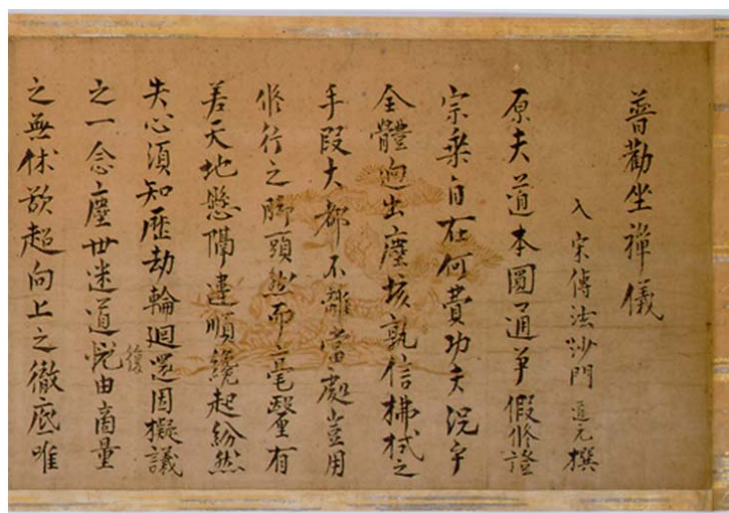 普勸坐禪儀
入宋傳法沙門道元撰
原夫道本圓通爭假修證
宗乘自在何費功夫況乎
全體迥出塵垓孰信拂拭之
手段大都不離當處豈用
修行之脚頭然而毫釐有
差天地懸隔違順纔起紛然
失心須知歷劫輪廻還因擬議
之一念塵世迷道復由商量
之無休欲超向上之徹底唯